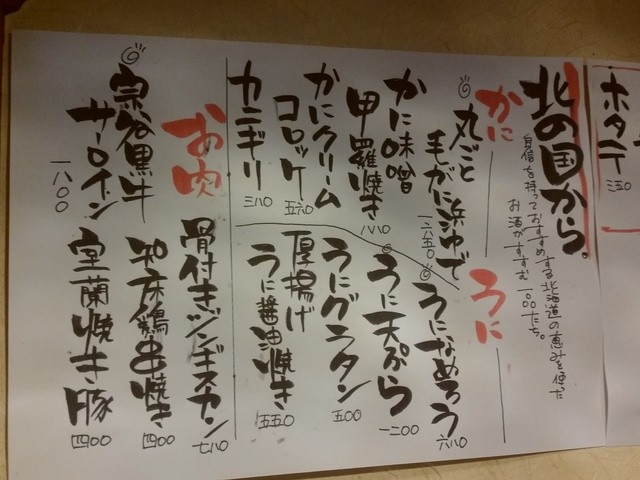 ホタテ
三五〇
北の国から。
自信を持っておすすめする北海道の恵みを使った
お酒がすすむ一品たち。
かに
丸ごと
毛がに浜ゆで
一、六五〇
かに味噌
甲羅焼き
八八〇
かにクリーム
コロッケ
五六〇
カニギリ
三八〇
うに
うになめろう
六八〇
うに天ぷら
一二〇〇
うにグラタン
五〇〇
厚揚げ
うに醤油焼き
五五〇
お肉
骨付きジンギスカン
七八〇
知床鶏串焼き
四〇〇
宗谷黒牛
サーロイン
一八〇〇
室蘭焼き豚
四〇〇